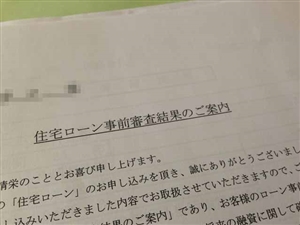 住宅ローン事前審査結果のご案内
清栄のこととお喜び申し上げます。
の「住宅ローン」のお申し込みを頂き、誠にありがとうございまし
し込みいただきました内容でお取扱させていただきますので、ご
結果のご案内」であり、お客様のローン事前
の融資に関して確